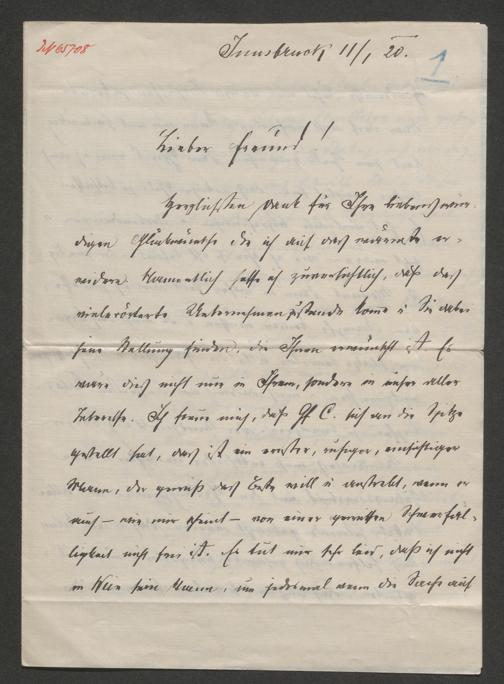 Innsbruck 11/1 20.
1
Lieber Freund!
Herzlichsten Dank für Ihre liebenswür-
digen Glückwünsche die ich auf das wärmste er-
widere. Namentlich hoffe ich zuversichtlich, daß das
vielerörterte Unternehmen zustande kome u Sie dabei
jene Stellung finden, die Ihnen erwünscht ist. Es
wäre dieß nicht nur in Ihrem, sondern in unser aller
Interesse. Ich freue mich, daß Gf C. sich an die Spitze
gestellt hat, das ist ein ernster, ruhiger, einsichtiger
Mann, der gewiß das Beste will u anstrebt, wenn er
auch – wie mir scheint – von einer gewissen Schwerfäl-
ligkeit nicht frei ist. Es tut mir sehr leid, daß ich nicht
in Wien sein kann, um jedesmal wenn die Sache auf